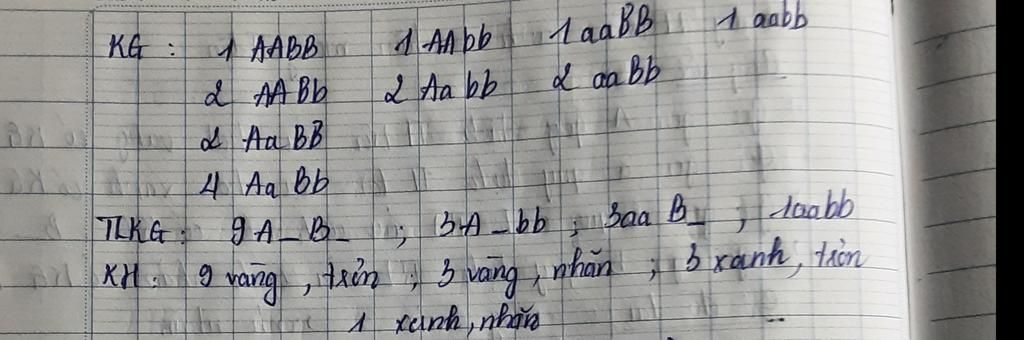 KG : 1 AABB 1 AAbb 1 aaBB 1 aabb
2 AABb 2 Aabb 2 aaBb
2 AaBB
4 AaBb
TLKG : 9A_B_ ; 3A_bb ; 3aaB_ ; 1aabb
KH : 9 vàng, trơn ; 3 vàng, nhăn ; 3 xanh, trơn
1 xanh, nhăn